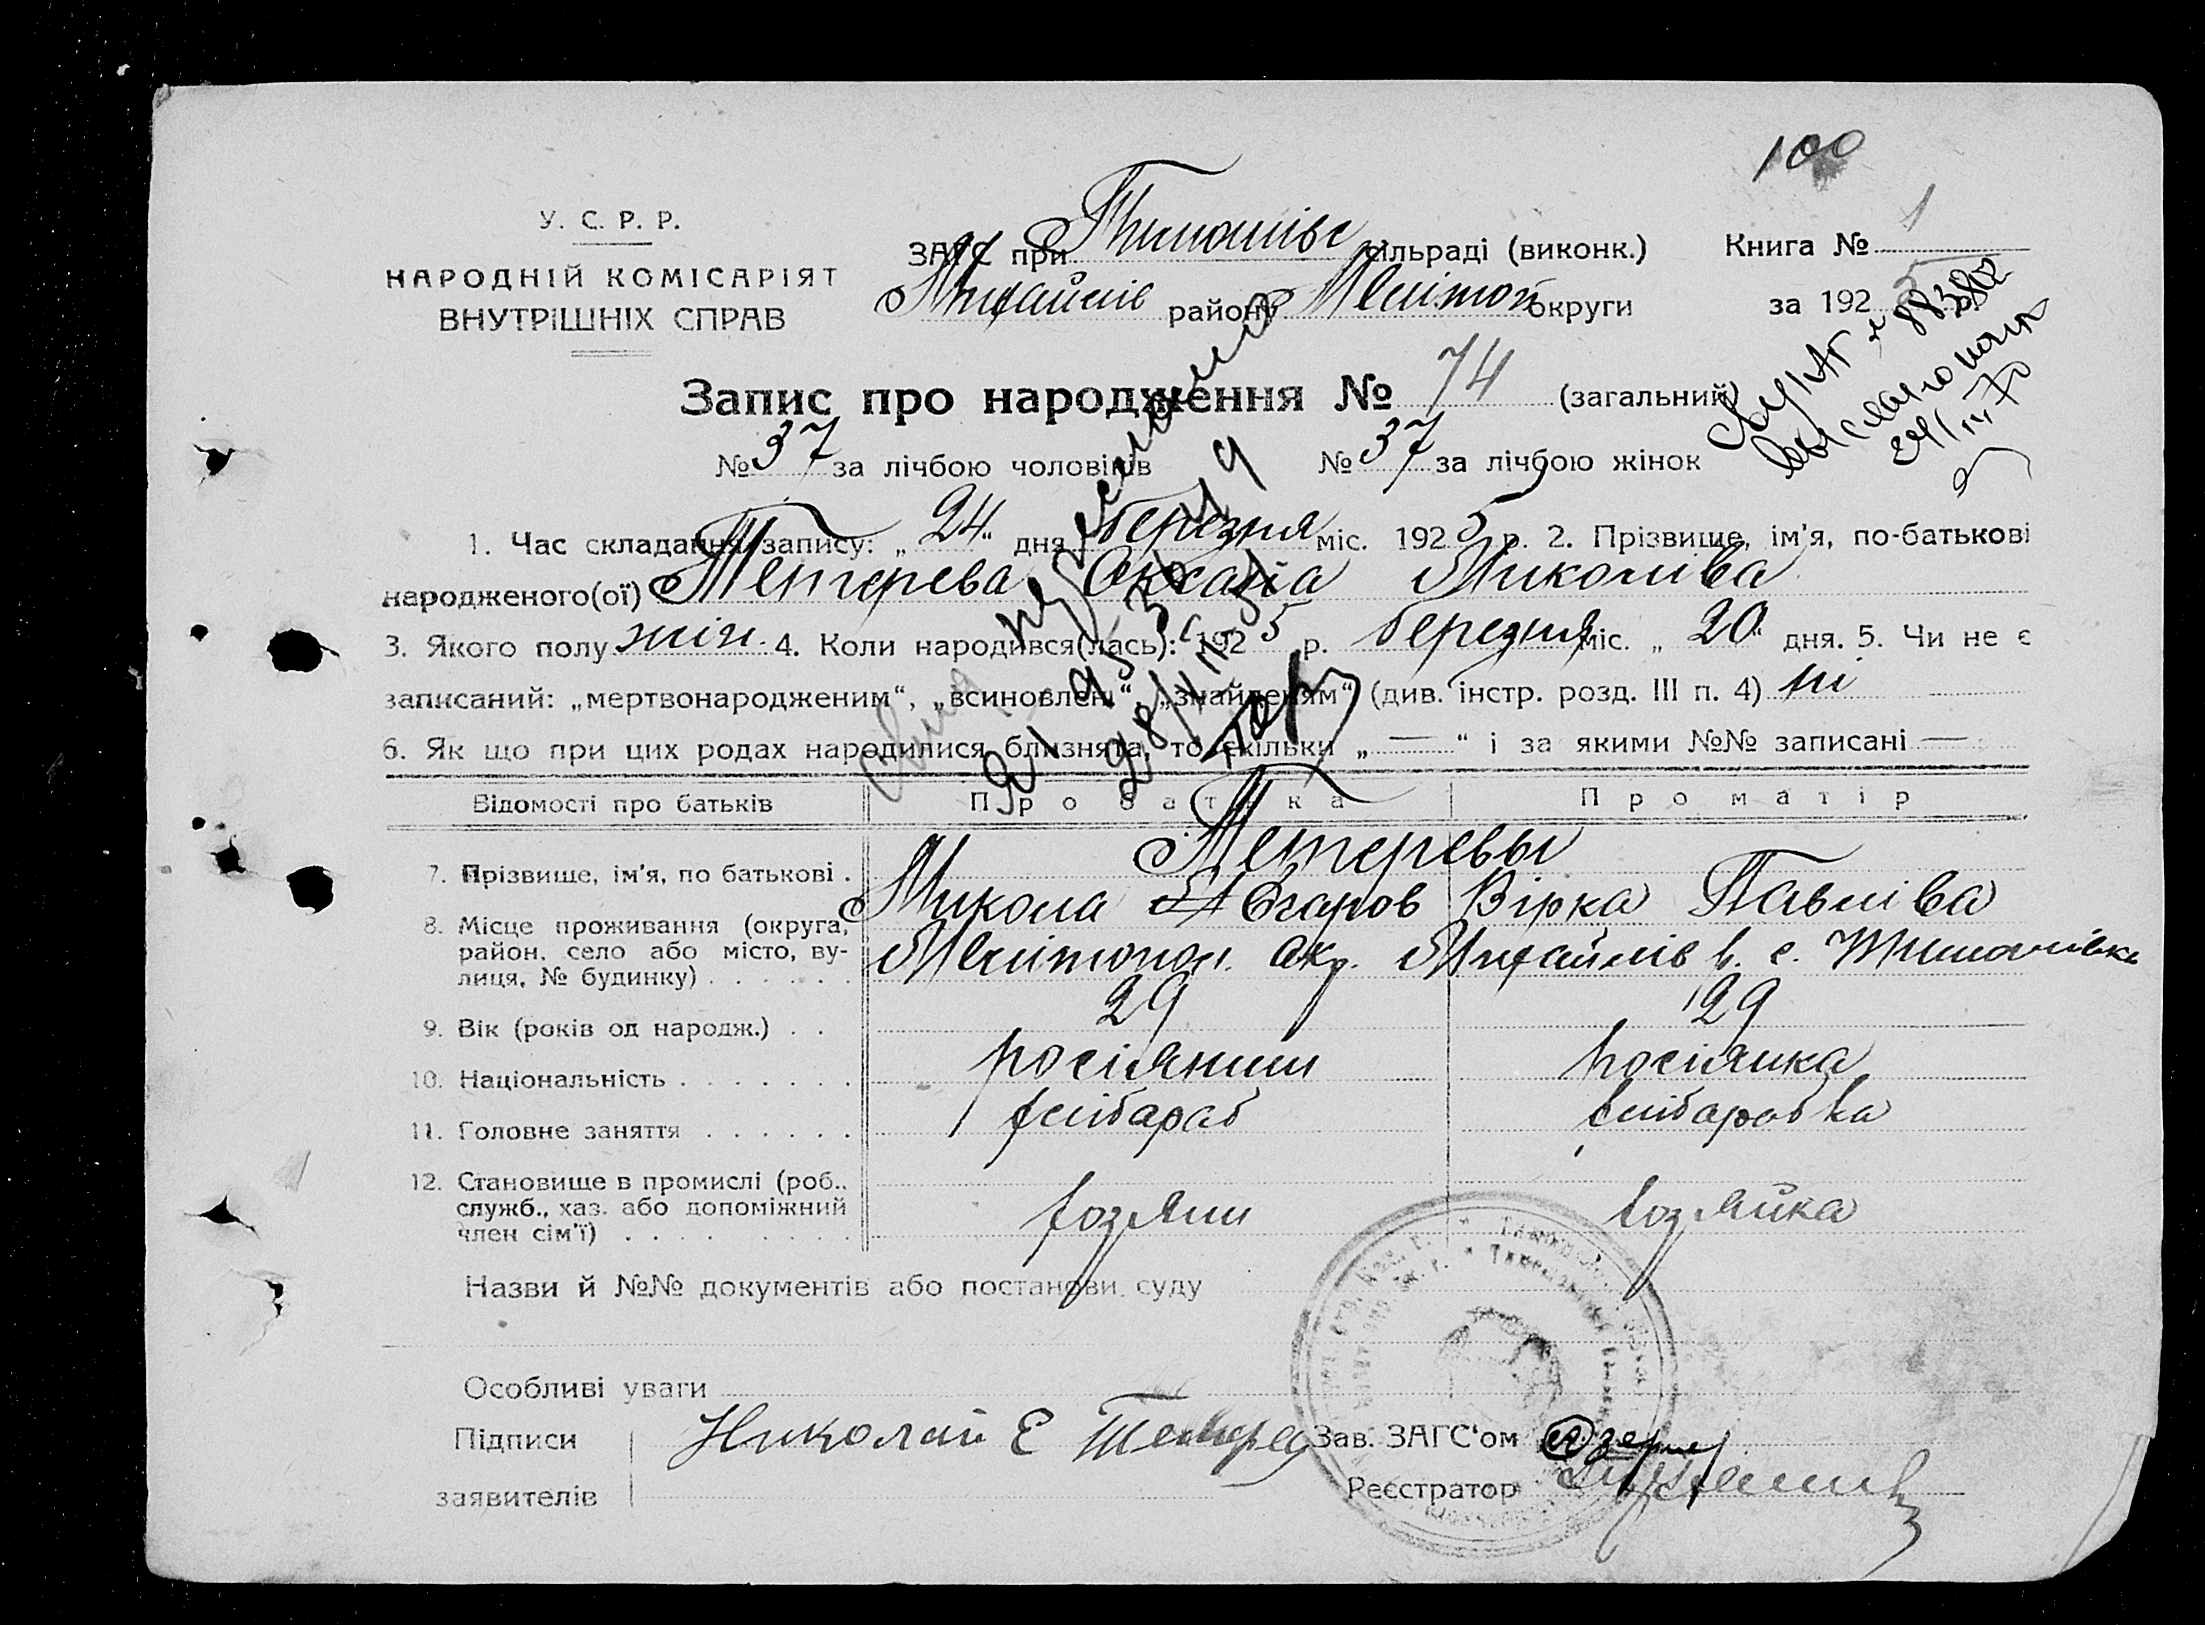 100
У. С. Р. Р.
НАРОДНІЙ КОМІСАРІЯТ
ВНУТРІШНІХ СПРАВ
ЗАГС при Тимошівс сільраді (виконк.)
Михайлів району Меліт округи
Книга № 1
за 1925 р.
Запис про народження № 74 (загальний)
№ 37 за лічбою чоловіків № 37 за лічбою жінок
1. Час складання запису: „24“ дня березня міс. 1925 р. 2. Прізвище, ім'я, по-батькові
народженого(ої) Тетерева Оксана Миколіва
3. Якого полу жін. 4. Коли народився(лась): 1925 р. березня міс. „20“ дня. 5. Чи не є
записаний: „мертвонародженим“, „всиновлені“, „знайденям“ (див. інстр. розд. III п. 4) ні
6. Як що при цих родах народилися близнята, то скільки „—“ і за якими №№ записані —
Відомості про батьків Про батька Про матір
Тетеревы
7. Прізвище, ім'я, по батькові . Микола Єгоров Вірка Павліва
8. Місце проживання (округа,
район, село або місто, ву-
лиця, № будинку) . . . . . . Мелітопол. окр. Михайлів р. с. Тимошівка
9. Вік (років од народж.) . . 29 29
10. Національність . . . . . . . росіянин росіянка
11. Головне заняття . . . . . . хлібароб хлібаробка
12. Становище в промислі (роб.,
служб., хаз. або допоміжний
член сім'ї) . . . . . . . . . хозяин хозяйка
Назви й №№ документів або постанови суду
Особливі уваги
Підписи
заявителів
Николай Е Тетерев
Зав. ЗАГС'ом
Реєстратор